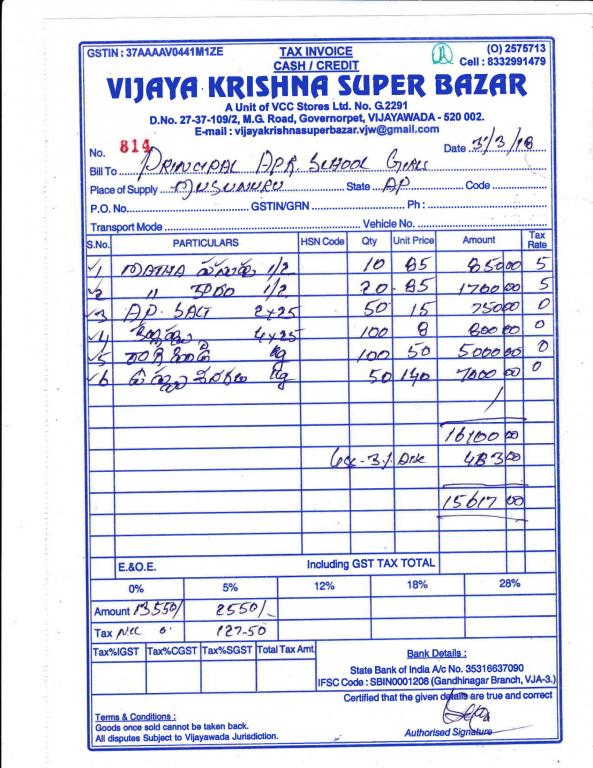 GSTIN : 37AAAAV0441M1ZE TAX INVOICE (O) 2575713
CASH / CREDIT Cell : 8332991479
VIJAYA KRISHNA SUPER BAZAR
A Unit of VCC Stores Ltd. No. G.2291
D.No. 27-37-109/2, M.G. Road, Governorpet, VIJAYAWADA - 520 002.
E-mail : vijayakrishnasuperbazar.vjw@gmail.com
No. 814 Date 3/3/18
Bill To PRINCIPAL APR. SCHOOL GIRLS
Place of Supply MUSUNURU State AP Code
P.O. No. GSTIN/GRN Ph :
Transport Mode Vehicle No.
S.No. PARTICULARS HSN Code Qty Unit Price Amount Tax Rate
1 1/2 10 85 850 00 5
2 " 1/2 20 85 1700 00 5
3 AP. SALT 2x25 50 15 750 00 0
4 4x25 100 8 800 00 0
5 Kg 100 50 5000 00 0
6 Kg 50 140 7000 00 0
16100 00
3% Disc 483 00
15617 00
E.&O.E. Including GST TAX TOTAL
0% 5% 12% 18% 28%
Amount 13550/- 2550/-
Tax 0 127-50
Tax%IGST Tax%CGST Tax%SGST Total Tax Amt. Bank Details :
State Bank of India A/c No. 35316637090
IFSC Code : SBIN0001208 (Gandhinagar Branch, VJA-3.)
Certified that the given details are true and correct
Terms & Conditions :
Goods once sold cannot be taken back.
All disputes Subject to Vijayawada Jurisdiction.
Authorised Signature